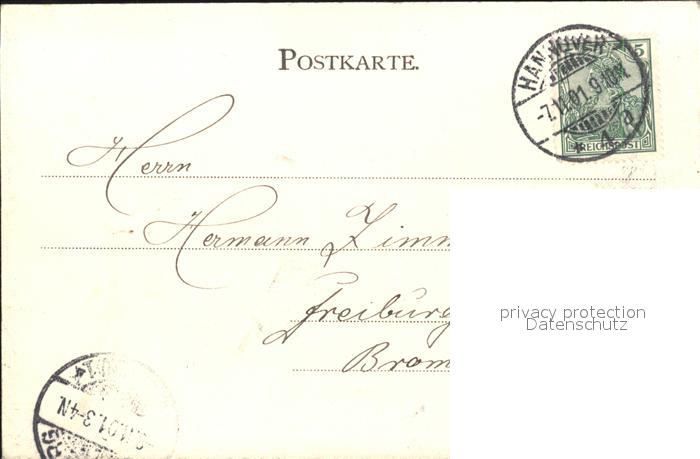 POSTKARTE.
HANNOVER
5
REICHSPOST
1 a
Herrn
Hermann Zimm
Freiburg
Brom
privacy protection
Datenschutz
3-4N.